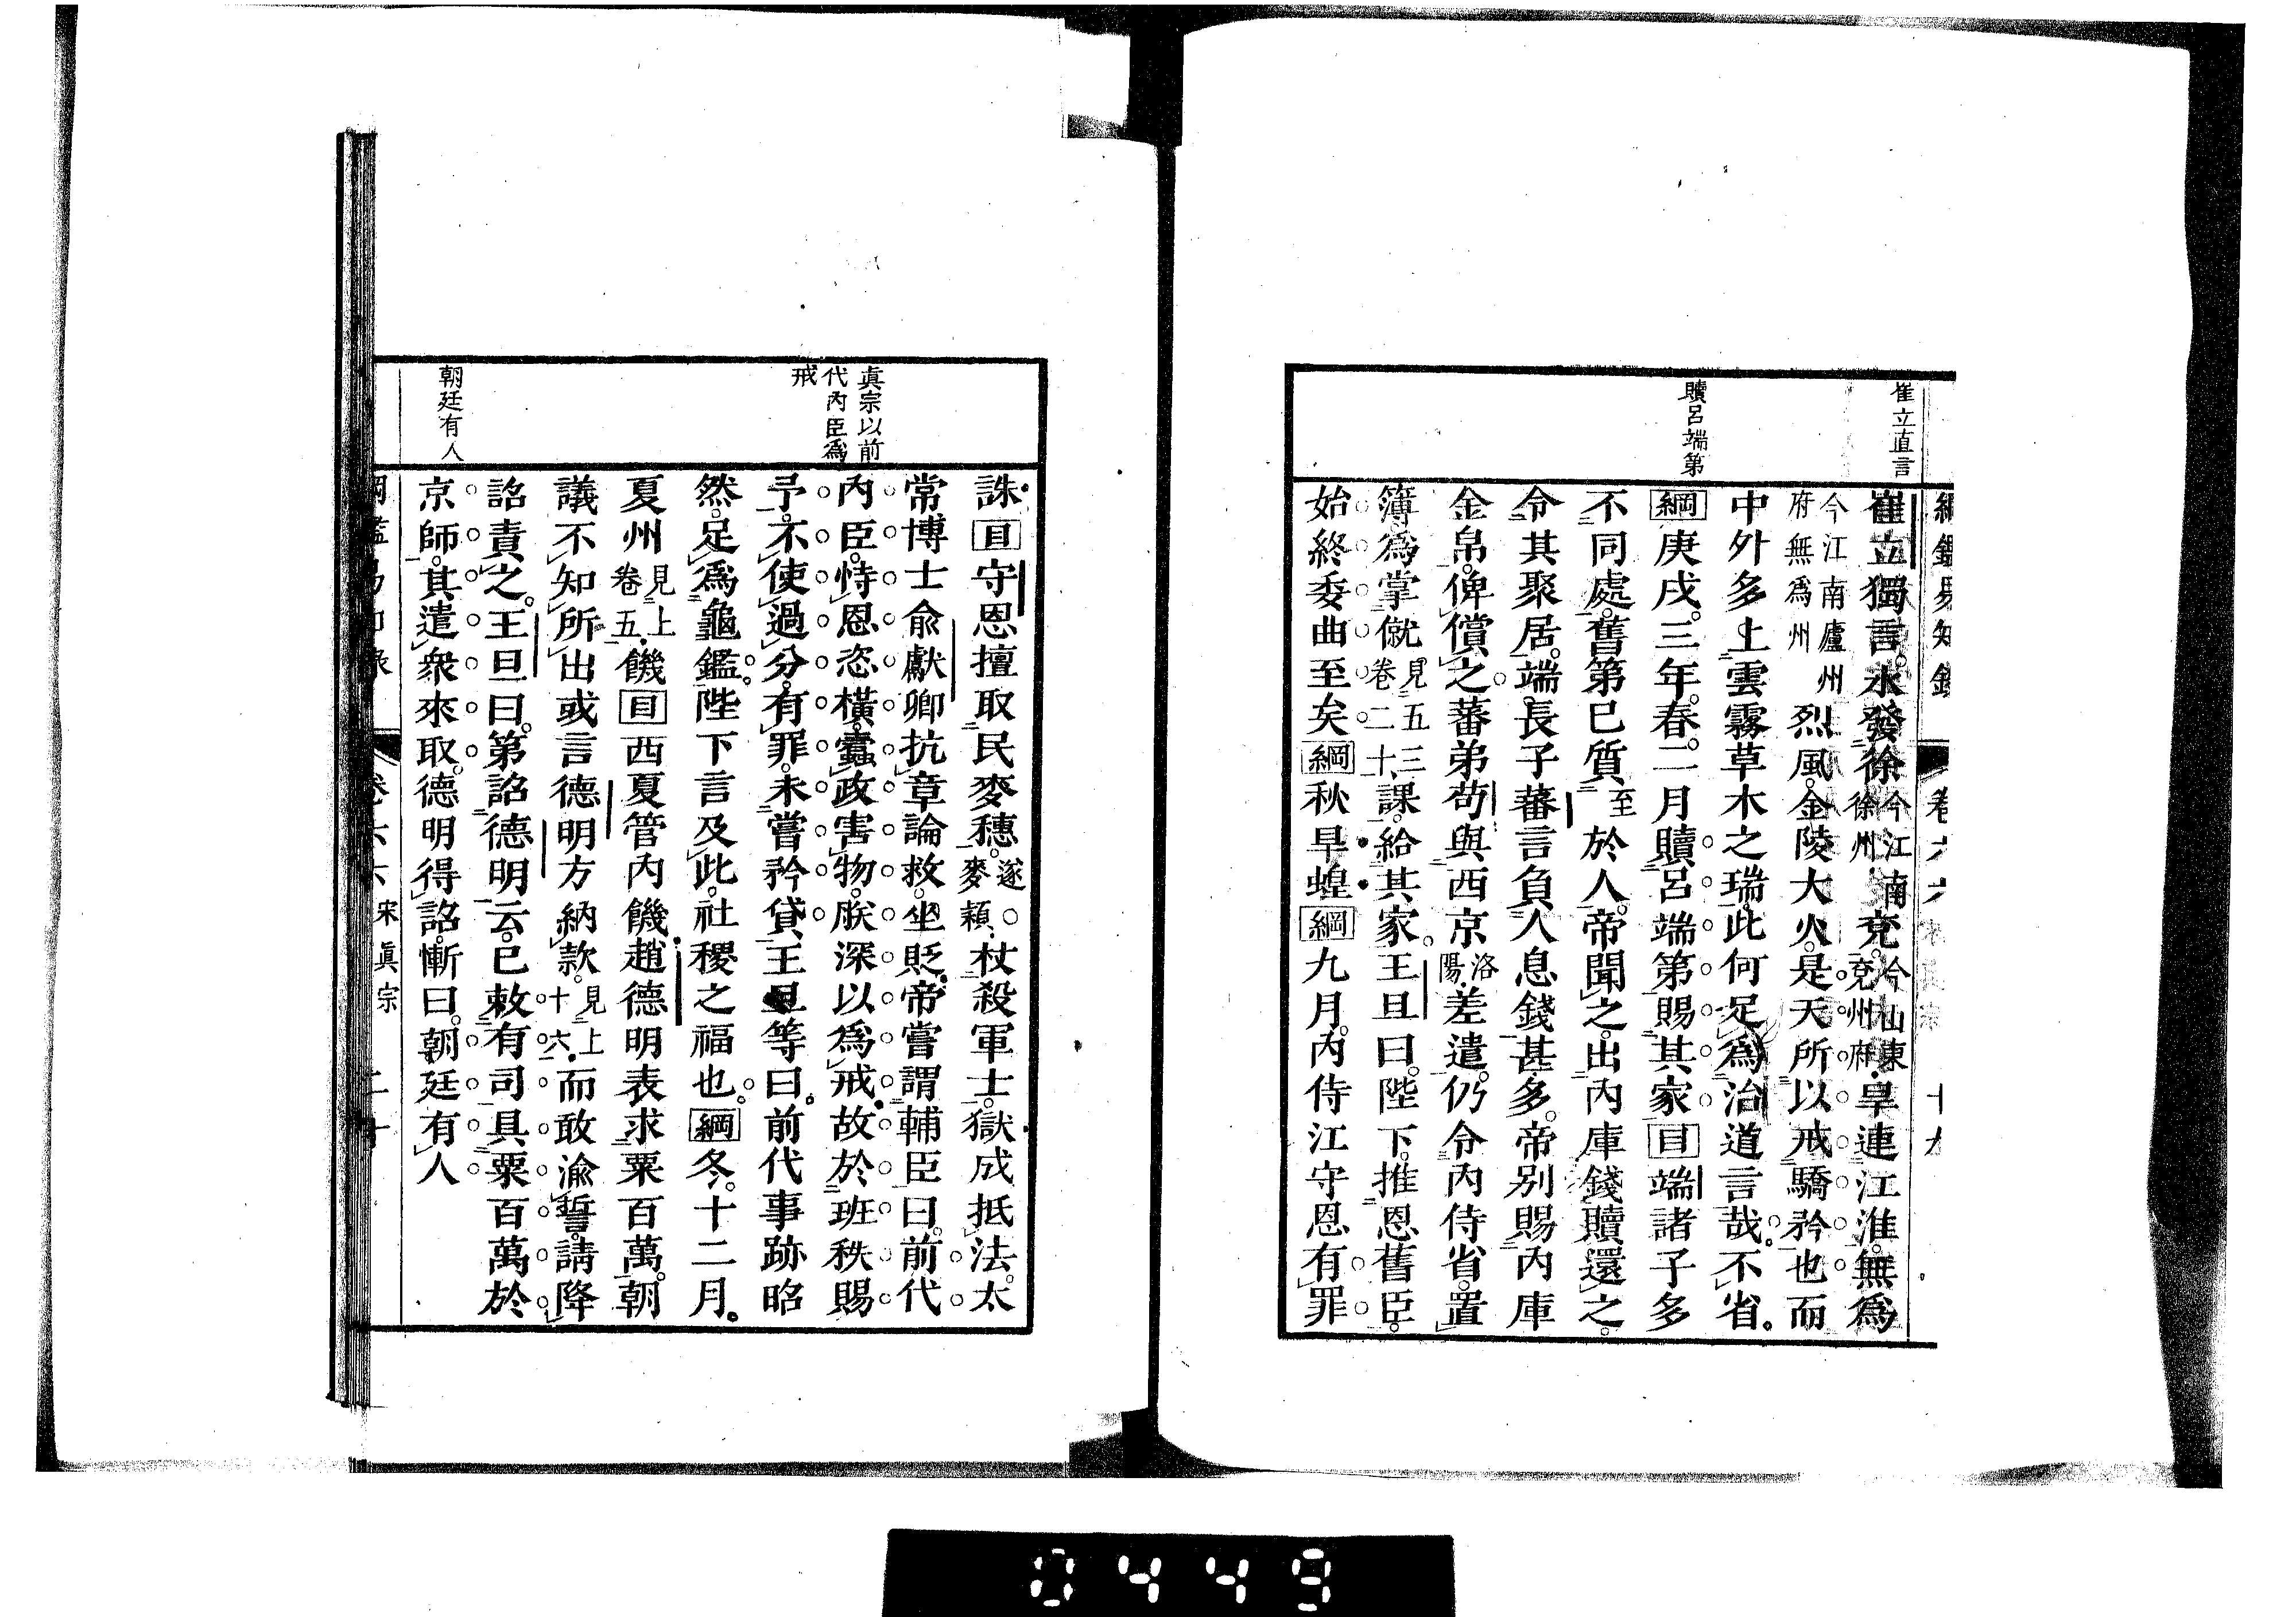 崔立直言
贖呂端第
崔立獨言水發徐今江南徐州兗今山東兗州府旱連江淮無爲
今江南廬州府無爲州烈風金陵大火是天所以戒驕矜也而
中外多上雲霧草木之瑞此何足爲治道言哉不省
綱庚戌三年春二月贖呂端第賜其家目端諸子多
不同處舊第已質至於人帝聞之出內庫錢贖還之
令其聚居端長子蕃言負人息錢甚多帝別賜內庫
金帛俾償之蕃弟苟與西京洛陽差遣仍令內侍省置
簿爲掌僦見五三卷二十課給其家王旦曰陛下推恩舊臣
始終委曲至矣綱秋旱蝗綱九月內侍江守恩有罪
眞宗以前
代內臣爲
戒
朝廷有人
誅目守恩擅取民麥穗遂麥穎杖殺軍士獄成抵法太
常博士兪獻卿抗章論救坐貶帝嘗謂輔臣曰前代
內臣恃恩恣橫蠹政害物朕深以爲戒故於班秩賜
予不使過分有罪未嘗矜貸王旦等曰前代事跡昭
然足爲龜鑑陛下言及此社稷之福也綱冬十二月
夏州見上卷五饑目西夏管內饑趙德明表求粟百萬朝
議不知所出或言德明方納款見上十六而敢渝誓請降
詔責之王旦曰第詔德明云已敕有司具粟百萬於
京師其遣衆來取德明得詔慚曰朝廷有人
宋眞宗
0449